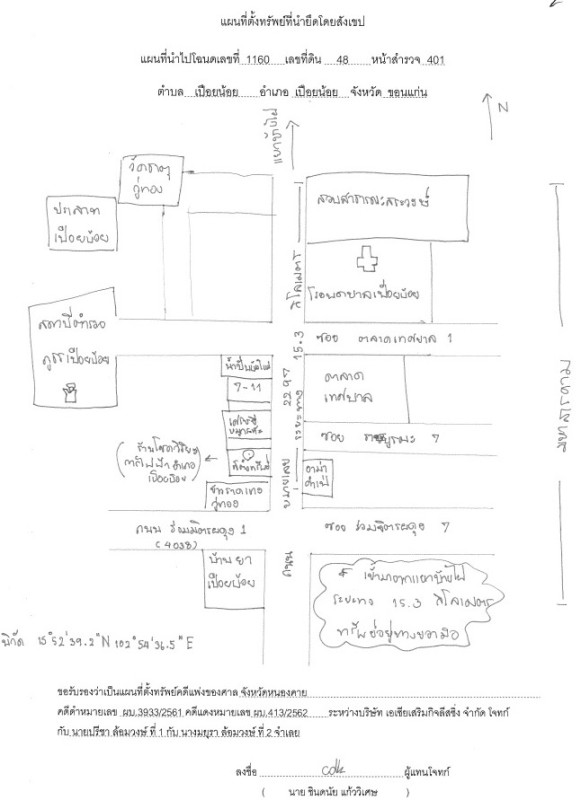 แผนที่ตั้งทรัพย์ที่นำยึดโดยสังเขป
แผนที่นำไปโฉนดเลขที่ 1160 เลขที่ดิน 48 หน้าสำรวจ 401
ตำบล เปือยน้อย อำเภอ เปือยน้อย จังหวัด ขอนแก่น
N
แยกบ้านไผ่
วัดธาตุ
กู่ทอง
สวนสาธารณะสระวงษ์
ปราสาท
เปือยน้อย
โรงพยาบาลเปือยน้อย
สถานีตำรวจ
ภูธรเปือยน้อย
15.3 กิโลเมตร
ซอย ตลาดเทศบาล 1
7-11
ตลาด
เทศบาล
ถนน หมายเลข 2297 ระยะทาง
ซอย 7
มหาสารคาม
การไฟฟ้าอำเภอ
เปือยน้อย
ที่ตั้งทรัพย์
ถนน ร่วมมิตรผดุง 1
(4038)
ซอย ร่วมมิตรผดุง 7
บ้านยา
เปือยน้อย
ระยะทาง 15.3 กิโลเมตร
ทรัพย์อยู่ทางขวามือ
พิกัด 15°52'39.2"N 102°54'36.5"E
ขอรับรองว่าเป็นแผนที่ตั้งทรัพย์คดีแพ่งของศาล จังหวัดหนองคาย
คดีดำหมายเลข ผบ.3933/2561 คดีแดงหมายเลข ผบ.413/2562 ระหว่างบริษัท เอเซียเสริมกิจลีสซิ่ง จำกัด โจทก์
กับ นายปรีชา ล้อมวงษ์ ที่ 1 กับ นางมยุรา ล้อมวงษ์ ที่ 2 จำเลย
ลงชื่อ ผู้แทนโจทก์
( นาย ชินดนัย แก้ววิเศษ )